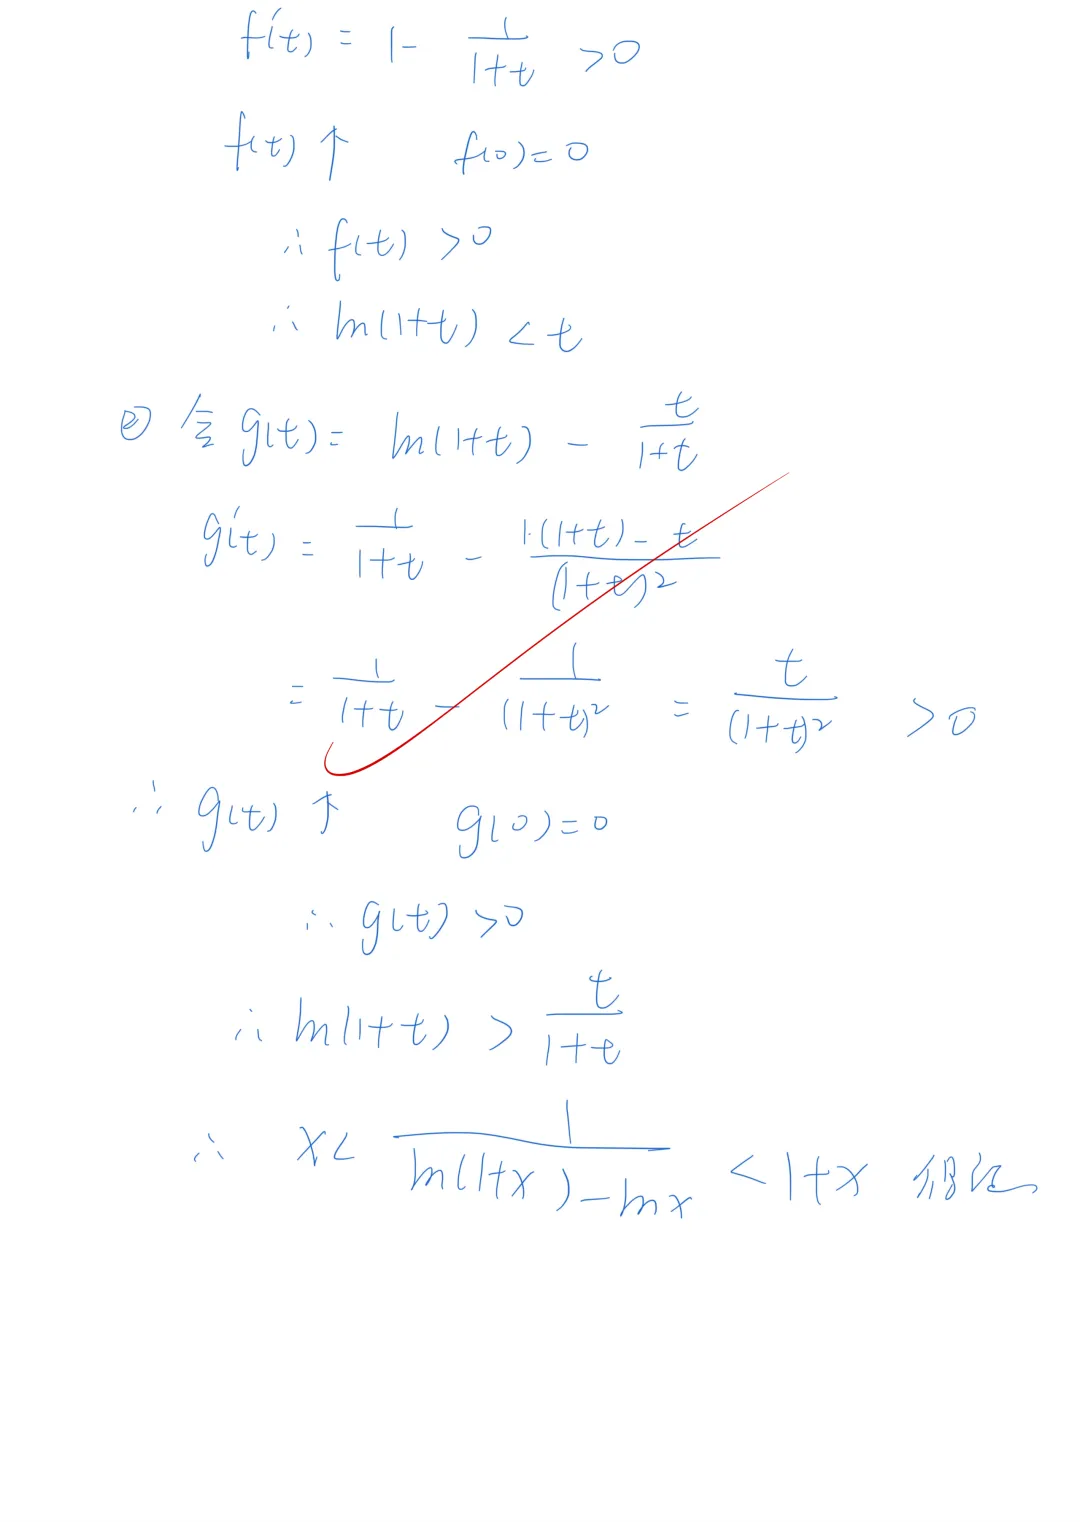 f'(t) = 1 - \frac{1}{1+t} >0
f(t) ↑ f(0)=0
∴ f(t) >0
∴ ln(1+t) < t
② 令 g(t) = ln(1+t) - \frac{t}{1+t}
g'(t) = \frac{1}{1+t} - \frac{1·(1+t) - t}{(1+t)^2}
= \frac{1}{1+t} - \frac{1}{(1+t)^2} = \frac{t}{(1+t)^2} >0
∴ g(t) ↑ g(0)=0
∴ g(t) >0
∴ ln(1+t) > \frac{t}{1+t}
∴ x < \frac{1}{ln(1+x) - lnx} < 1+x 得证